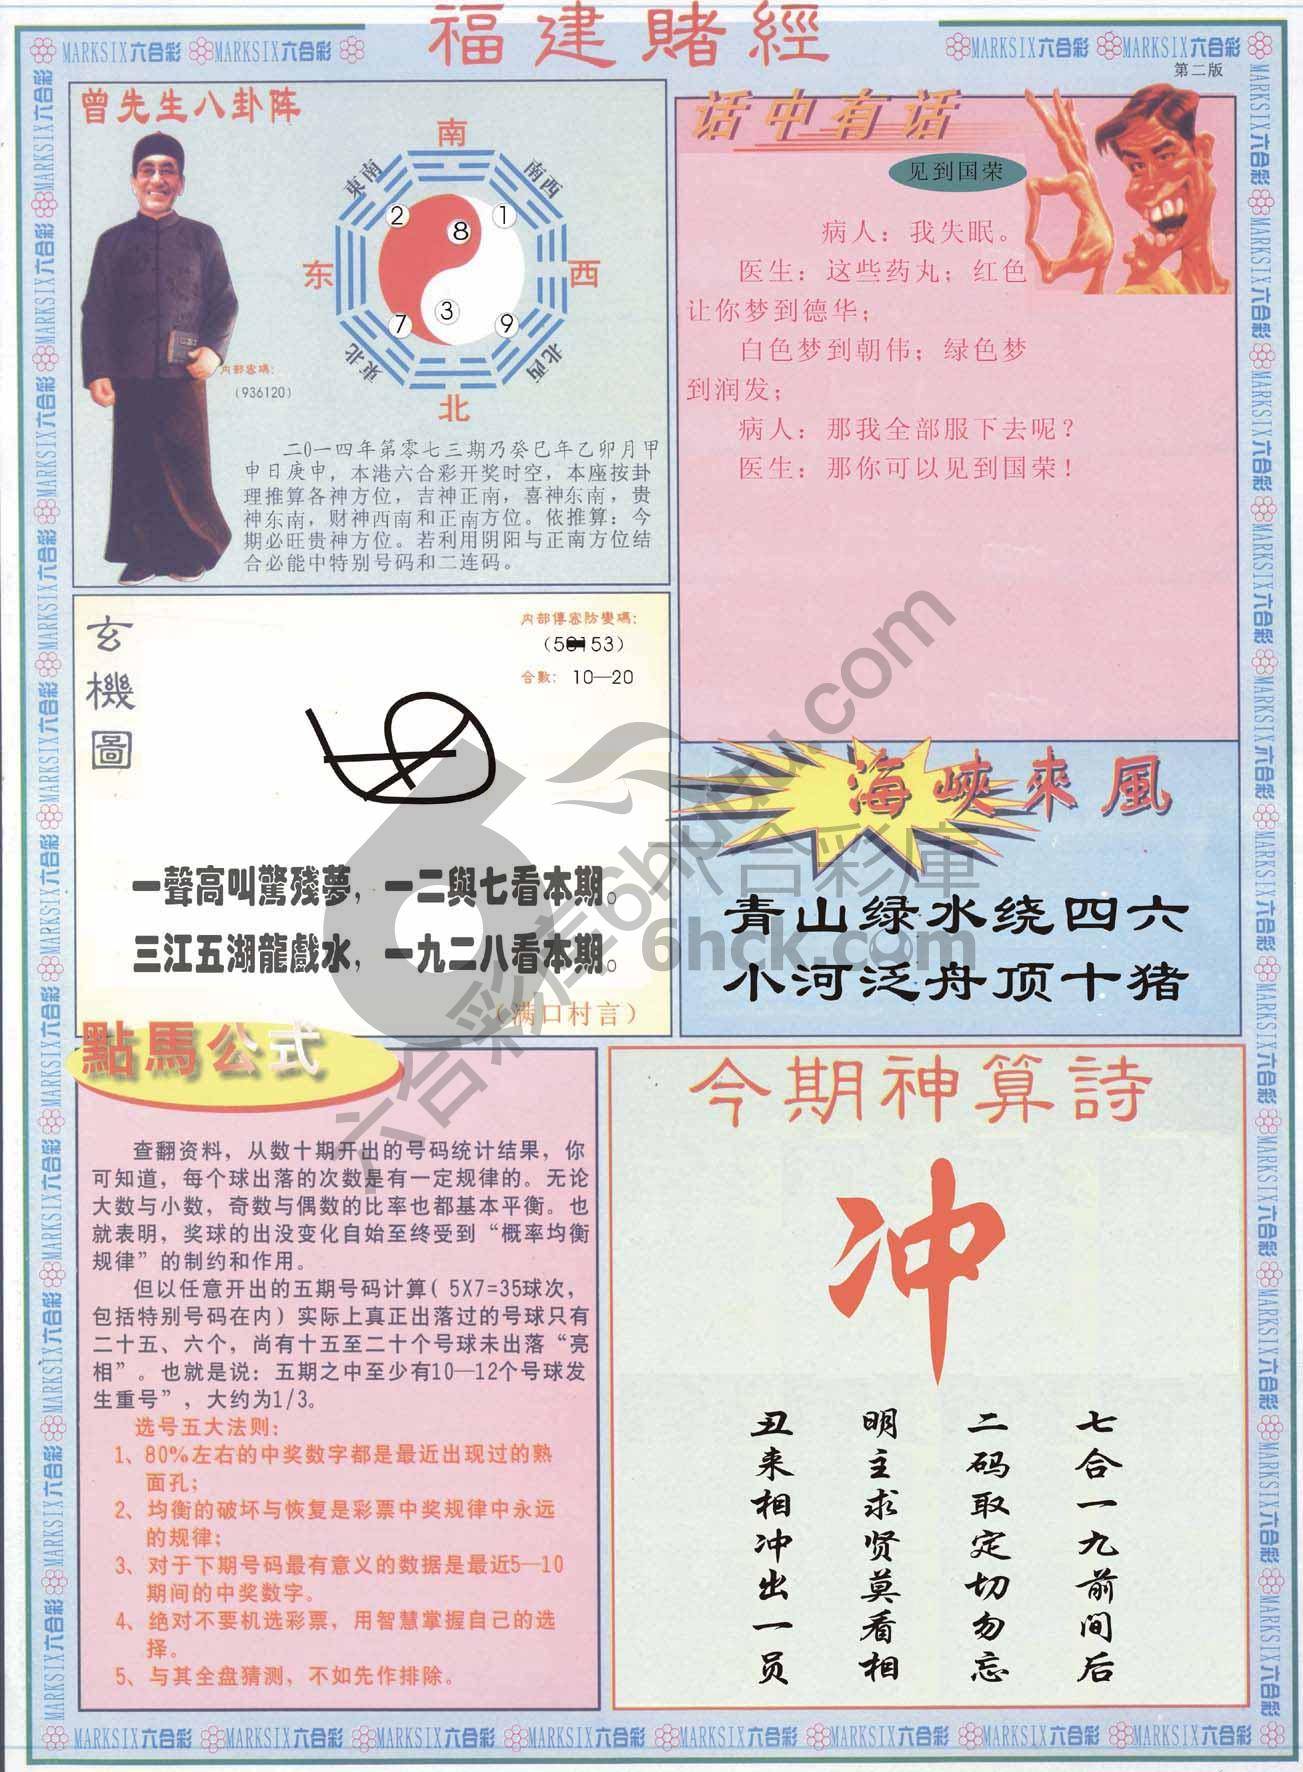 福建賭經
MARKSIX六合彩 MARKSIX六合彩
MARKSIX六合彩 MARKSIX六合彩
第二版
曾先生八卦阵
南
東南
南西
2
1
8
东
西
3
7
9
東北
北西
北
内部密碼：
(936120)
二0一四年第零七三期乃癸巳年乙卯月甲
申日庚申，本港六合彩开奖时空，本座按卦
理推算各神方位，吉神正南，喜神东南，贵
神东南，财神西南和正南方位。依推算：今
期必旺贵神方位。若利用阴阳与正南方位结
合必能中特别号码和二连码。
话中有话
见到国荣
病人：我失眠。
医生：这些药丸；红色
让你梦到德华；
白色梦到朝伟；绿色梦
到润发；
病人：那我全部服下去呢？
医生：那你可以见到国荣！
玄機圖
内部傳密防變碼：
53）
合數：10—20
一聲高叫驚殘夢，一二與七看本期。
三江五湖龍戲水，一九二八看本期。
（满口村言）
海峽來風
青山绿水绕四六
小河泛舟顶十猪
點馬公式
查翻资料，从数十期开出的号码统计结果，你
可知道，每个球出落的次数是有一定规律的。无论
大数与小数，奇数与偶数的比率也都基本平衡。也
就表明，奖球的出没变化自始至终受到“概率均衡
规律”的制约和作用。
但以任意开出的五期号码计算（5X7=35球次，
包括特别号码在内）实际上真正出落过的号球只有
二十五、六个，尚有十五至二十个号球未出落“亮
相”。也就是说：五期之中至少有10—12个号球发
生重号”，大约为1/3。
选号五大法则：
1、80%左右的中奖数字都是最近出现过的熟
面孔；
2、均衡的破坏与恢复是彩票中奖规律中永远
的规律；
3、对于下期号码最有意义的数据是最近5—10
期间的中奖数字。
4、绝对不要机选彩票，用智慧掌握自己的选
择。
5、与其全盘猜测，不如先作排除。
今期神算詩
冲
七合一九前间后
二码取定切勿忘
明主求贤莫看相
丑来相冲出一员
六合彩库6hdudu.com
六合彩庫
6hck.com
MARKSIX六合彩 MARKSIX六合彩 MARKSIX六合彩 MARKSIX六合彩 MARKSIX六合彩 MARKSIX六合彩 MARKSIX六合彩 MARKSIX六合彩